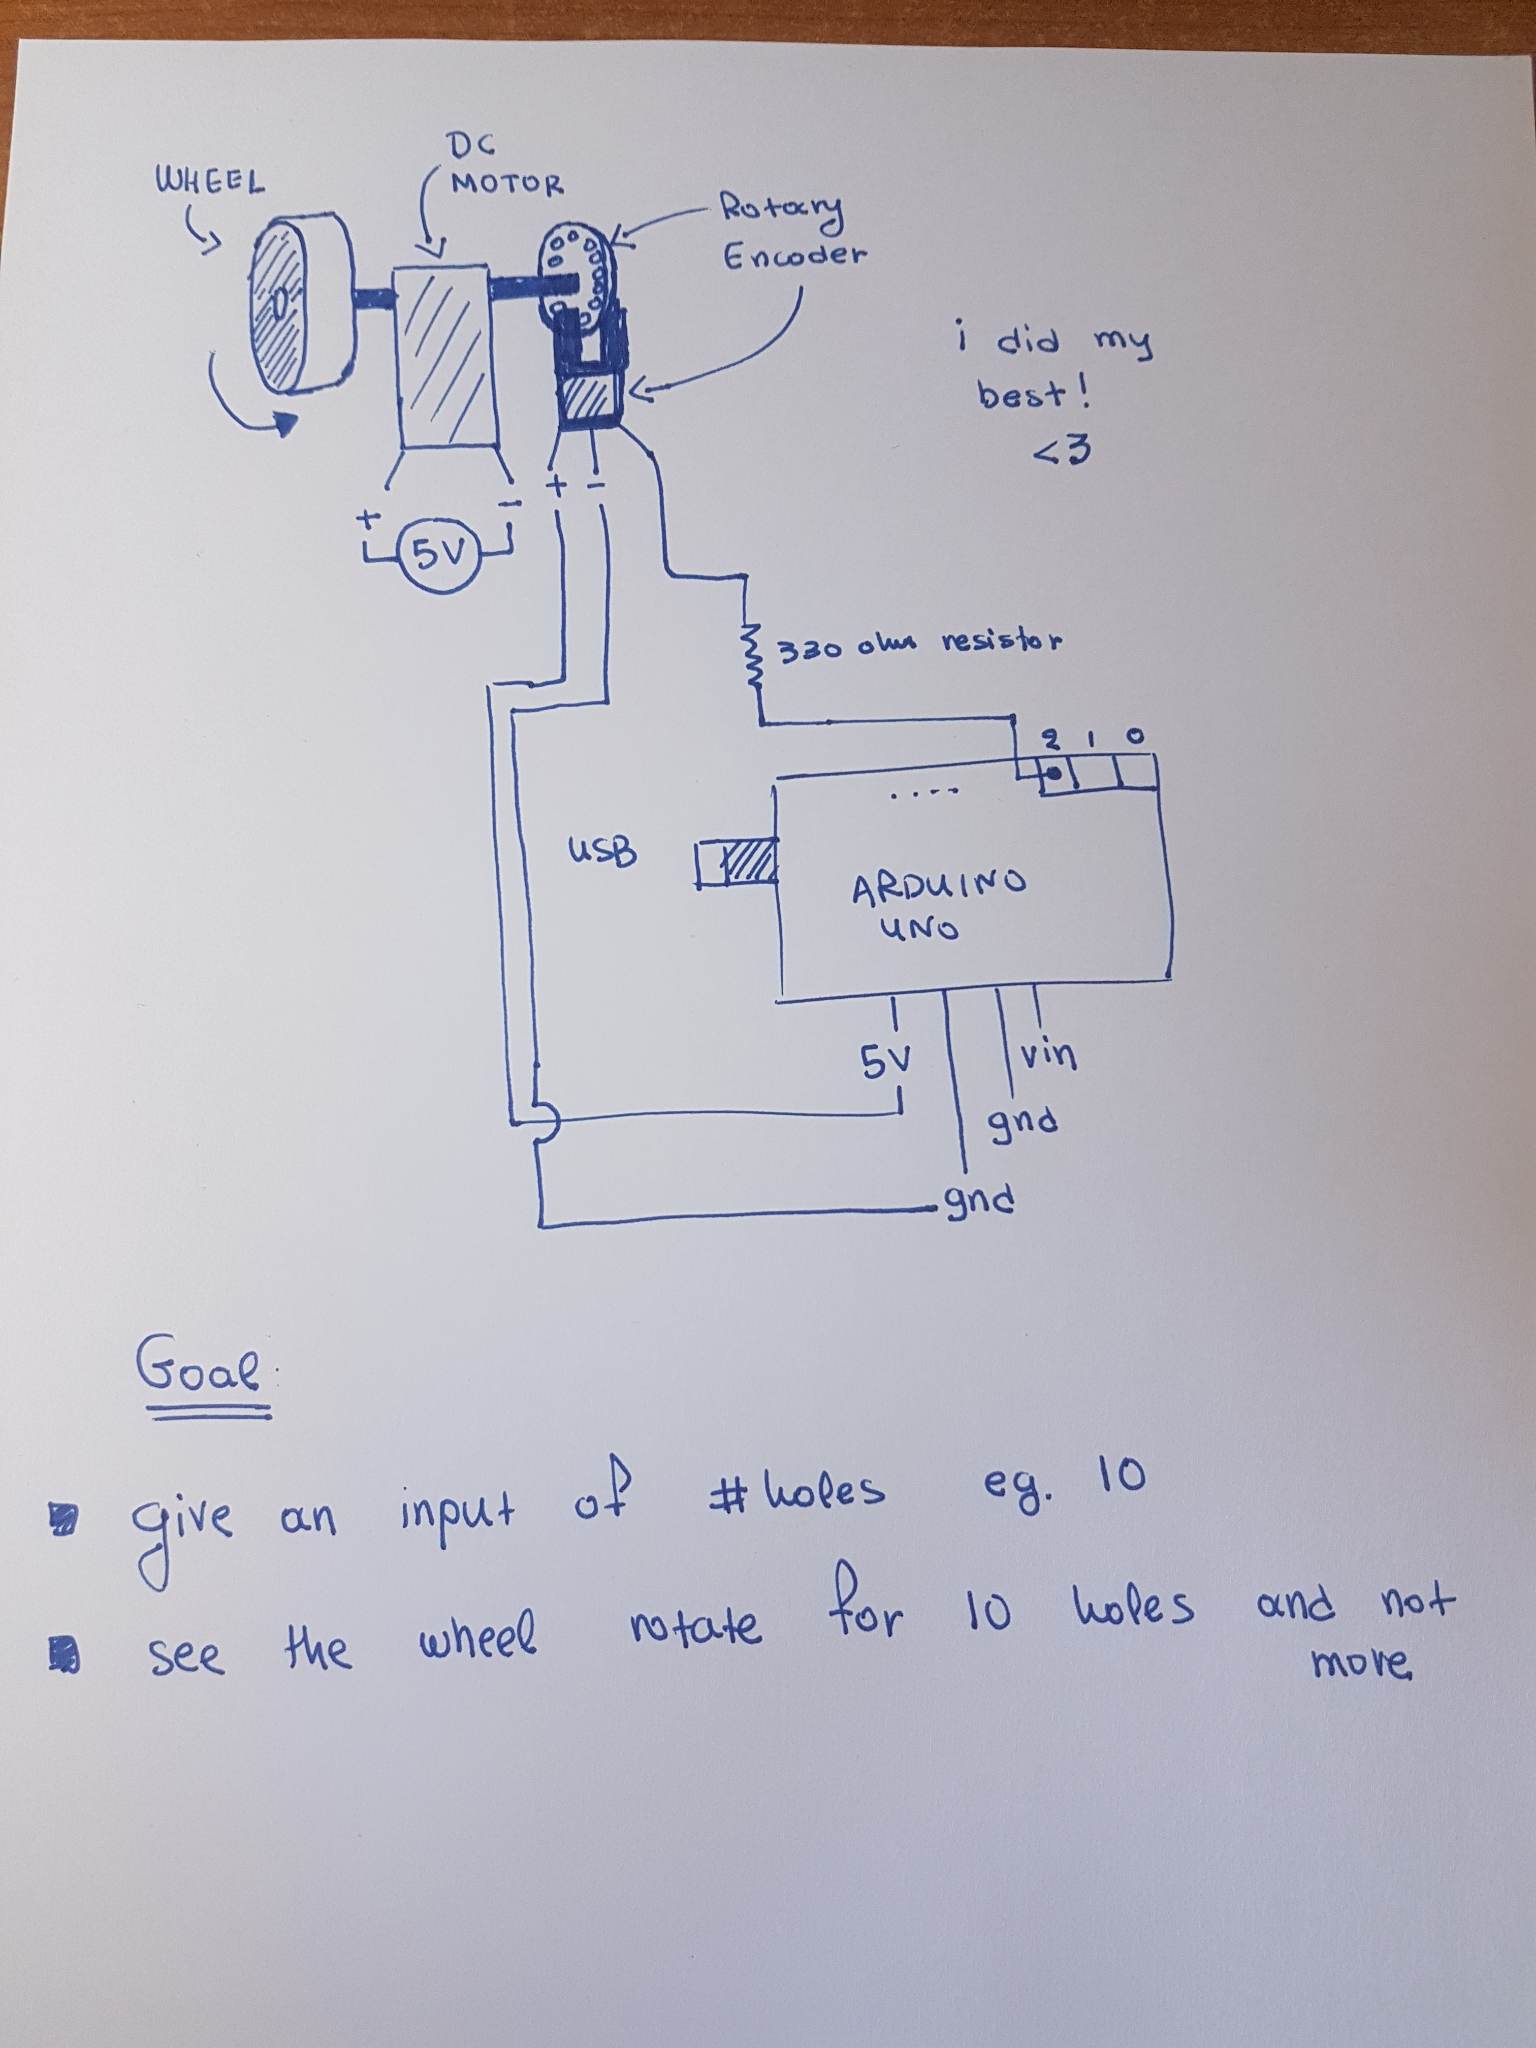 WHEEL
DC
MOTOR
Rotary
Encoder
i did my
best!
<3
+ -
+ -
5V
330 ohm resistor
2 1 0
....
USB
ARDUINO
UNO
5V
vin
gnd
gnd
Goal:
give an input of #holes eg. 10
see the wheel rotate for 10 holes and not
more